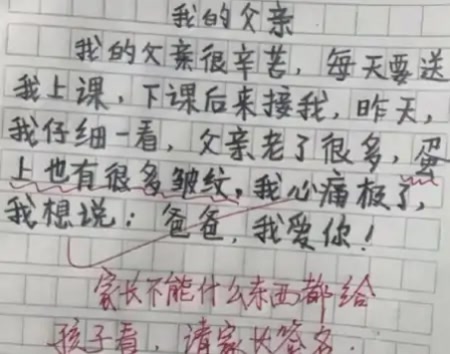 我的父亲
我的父亲很辛苦，每天要送
我上课，下课后来接我，昨天，
我仔细一看，父亲老了很多，蛋
上也有很多皱纹，我心痛极了，
我想说：爸爸，我爱你！
家长不能什么东西都给
孩子看，请家长签名.